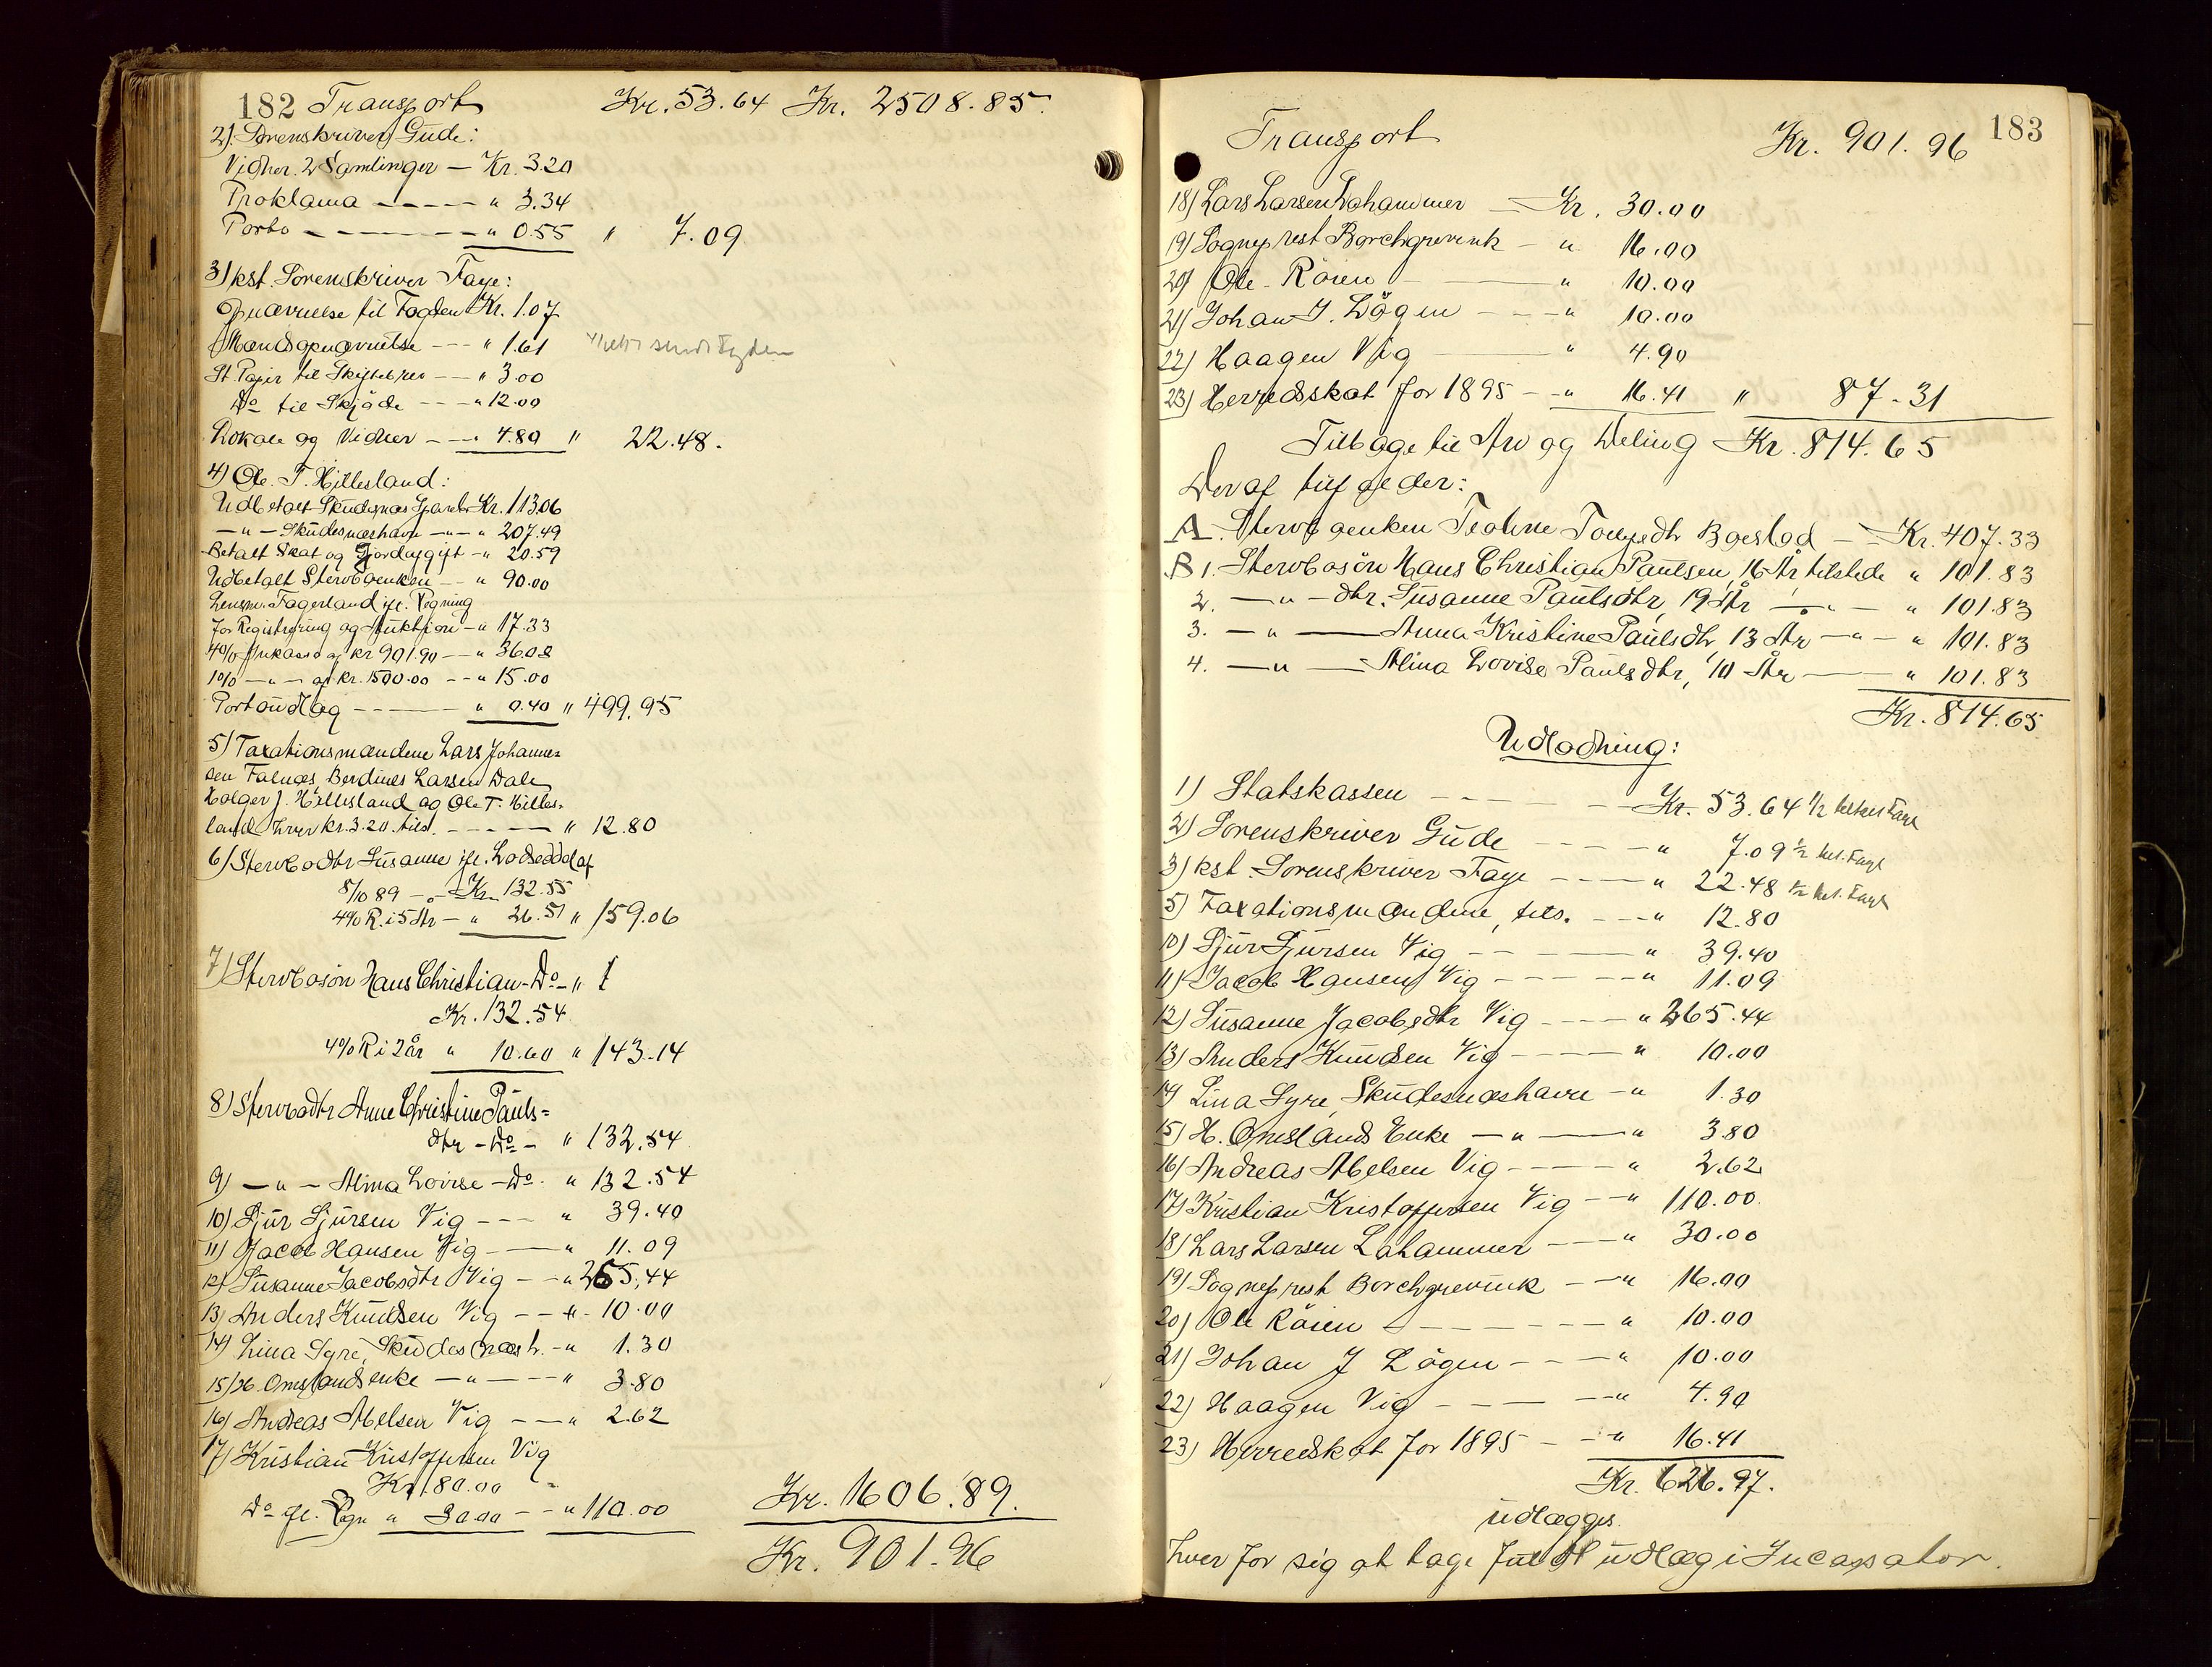 182 Transport Kr. 53.64 Kr. 2508.85.
2) Sorenskriver Gude:
Vidner. 2 Samlinger — Kr. 3.20
Proklama — — — — " 3.34
Porto — — — — " 0.55 " 7.09
3) kst. Sorenskriver Faye:
Opnævnelse til Fogden Kr. 1.07
Mandsopnævnelse — — " 1.61
St. Papir til Skiftebrev — — " 3.00
Do til Skjøde — — " 12.00
Lokale og Vidner — — " 4.80 " 22.48.
4) Ole. T. Hillesland:
Udbetalt Skudenæs Sparebk. Kr. 113.06
— " — Skudesnæshavn — " — " 207.49
Betalt Skat og Jordafgift — " 20.59
Udbetalt Stervboenken — — " 90.00
Lensm. Fagerland ifl. Regning
for Registrering og Auktion — " 17.33
4% Inkasso af kr 901.90 — — " 36.08
1% — " — af Kr. 1500.00 — — " 15.00
Portoudlæg — — — — " 0.40 " 499.95
5) Taxationsmændene Lars Johanne=
sen Falnæs, Berdines Larsen Dale
Holger J. Hillesland og Ole T. Hilles-
land hver kr. 3.20. tils. — — — — " 12.80
6) Stervbodtr Susanne ifl. Lodseddel af
8/10 89 — " — Kr. 132.55
4% R. i 5 År — " 26.51 " 159.06
7) Stervbosön Hans Christian — Do — "
Kr. 132.54
4% R i 2 år " 10.60 " 143.14
8) Stervbodtr Anne Christine Pauls=
dtr — Do — " 132.54
9) — " — Alina Lovise — Do. " 132.54
10) Sjur Sjursen Vig — — — " 39.40
11) Jacob Hansen Vig — — — " 11.09
12) Susanne Jacobsdtr Vig — — " 265.44
13) Anders Knudsen Vig — — " — 10.00
14) Lina Syre, Skudesnæsh. — " 1.30
15) H. Omslands enke — " — — — " 3.80
16) Andreas Abelsen Vig — — — " 2.62
17) Kristian Kristoffersen Vig
Kr. 80.00
Do ifl. Rgn " 30.00 — — " 110.00 Kr. 1606.89.
Kr. 901.96
Transport Kr. 901.96 183
18) Lars Larsen Lahammer — Kr. 30.00
19) Sogneprest Borchgrevink — " 16.00
20) Ole Röien — — — " 10.00
21) Johan J. Lögen — — — " 10.00
22) Haagen Vig — — — " 4.90
23) Herredsskat for 1895 — — " 16.41 " 87.31
Tilbage til Arv og Deling Kr. 814.65
Deraf tilfalder:
A. Stervboenken Teoline Bgestad — Kr. 407.33
B 1. Stervbosön Hans Christian Paulsen, 16 År, tilstede " 101.83
2. — " — dtr. Susanne Paulsdtr, 19 År — " — " 101.83
3. — " — Anna Kristine Paulsdtr, 13 År — " — " 101.83
4. — " — Alina Lovise Paulsdtr, 10 År — — " 101.83
Kr. 814.65
Udlodning:
1) Statskassen — — — — — Kr. 53.64 1/2
2) Sorenskriver Gude — — — — " 7.09 1/2
3) kst. Sorenskriver Faye — — — " 22.48 1/2
5) Taxationsmændene, tils. — — — " 12.80
10) Sjur Sjursen Vig — — — — " 39.40
11) Jacob Hansen Vig — — — — " 11.09
12) Susanne Jacobsdtr Vig — — — " 265.44
13) Anders Knudsen Vig — — — — " 10.00
14) Lina Syre, Skudesnæshavn — " 1.30
15) H. Omslands Enke — " — — — " 3.80
16) Andreas Abelsen Vig — — — — " 2.62
17) Kristian Kristoffersen Vig — — " 110.00.
18) Lars Larsen Lahammer — — — " 30.00
19) Sogneprest Borchgrevink — — " 16.00
20) Ole Röien — — — — — — " 10.00
21) Johan J Lögen — — — " 10.00
22) Haagen Vig — — — — " 4.90
23) Herredskat for 1895 — — " 16.41
Kr. 626.97.
udlægges.
hver for sig at tage fuldt udlæg i Incassator.